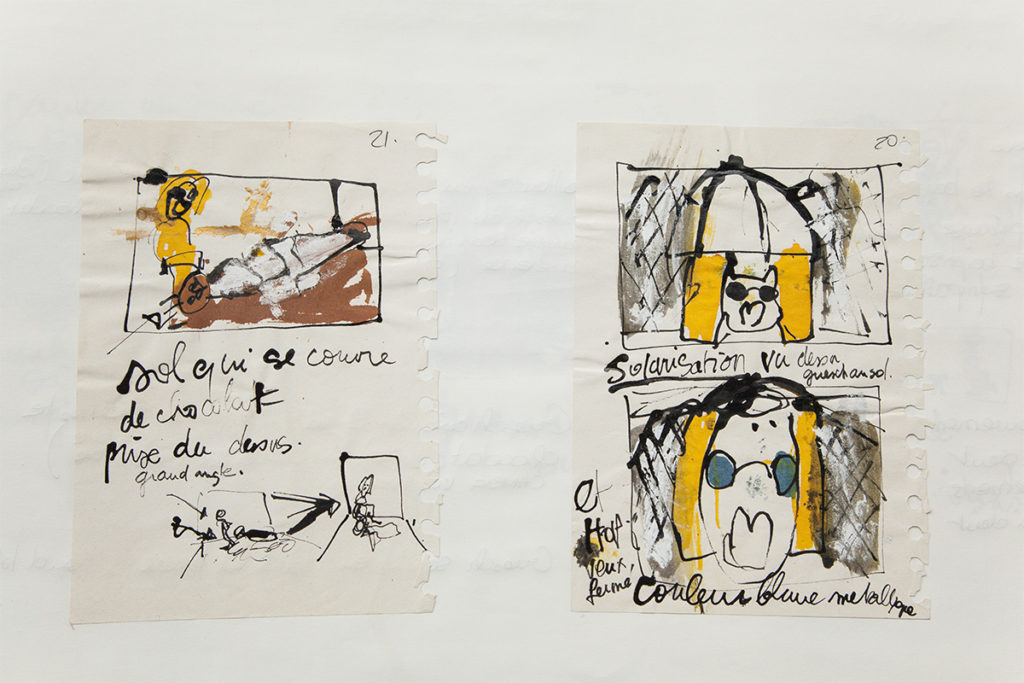 21.
sol qui se couvre
de chocolat
prise du dessus.
grand angle.
20
Solarisation vu dessu
et
Hop
yeux,
ferme
couleur blune metallique